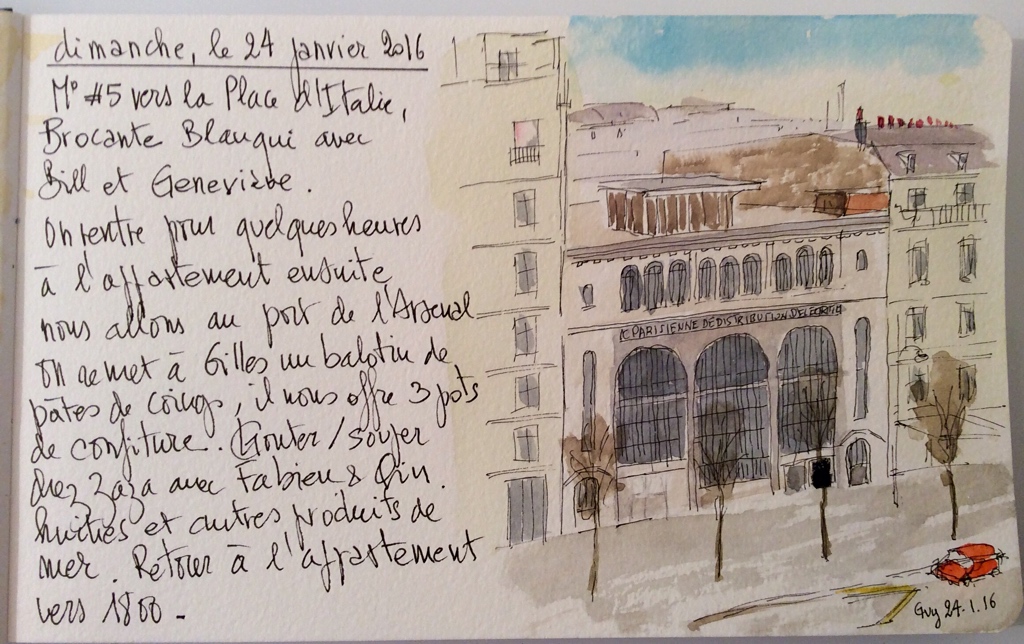 dimanche, le 24 janvier 2016
M° #5 vers la Place d'Italie,
Brocante Blanqui avec
Bill et Geneviève.
On rentre pour quelques heures
à l'appartement ensuite
nous allons au port de l'Arsenal
On remet à Gilles un balotin de
pâtes de coings, il nous offre 3 pots
de confiture. Gouter/souper
chez Zaza avec Fabien &
huitres et autres produits de
mer. Retour à l'appartement
vers 1800 -
PARISIENNE DE DISTRIBUTION
Guy 24.1.16